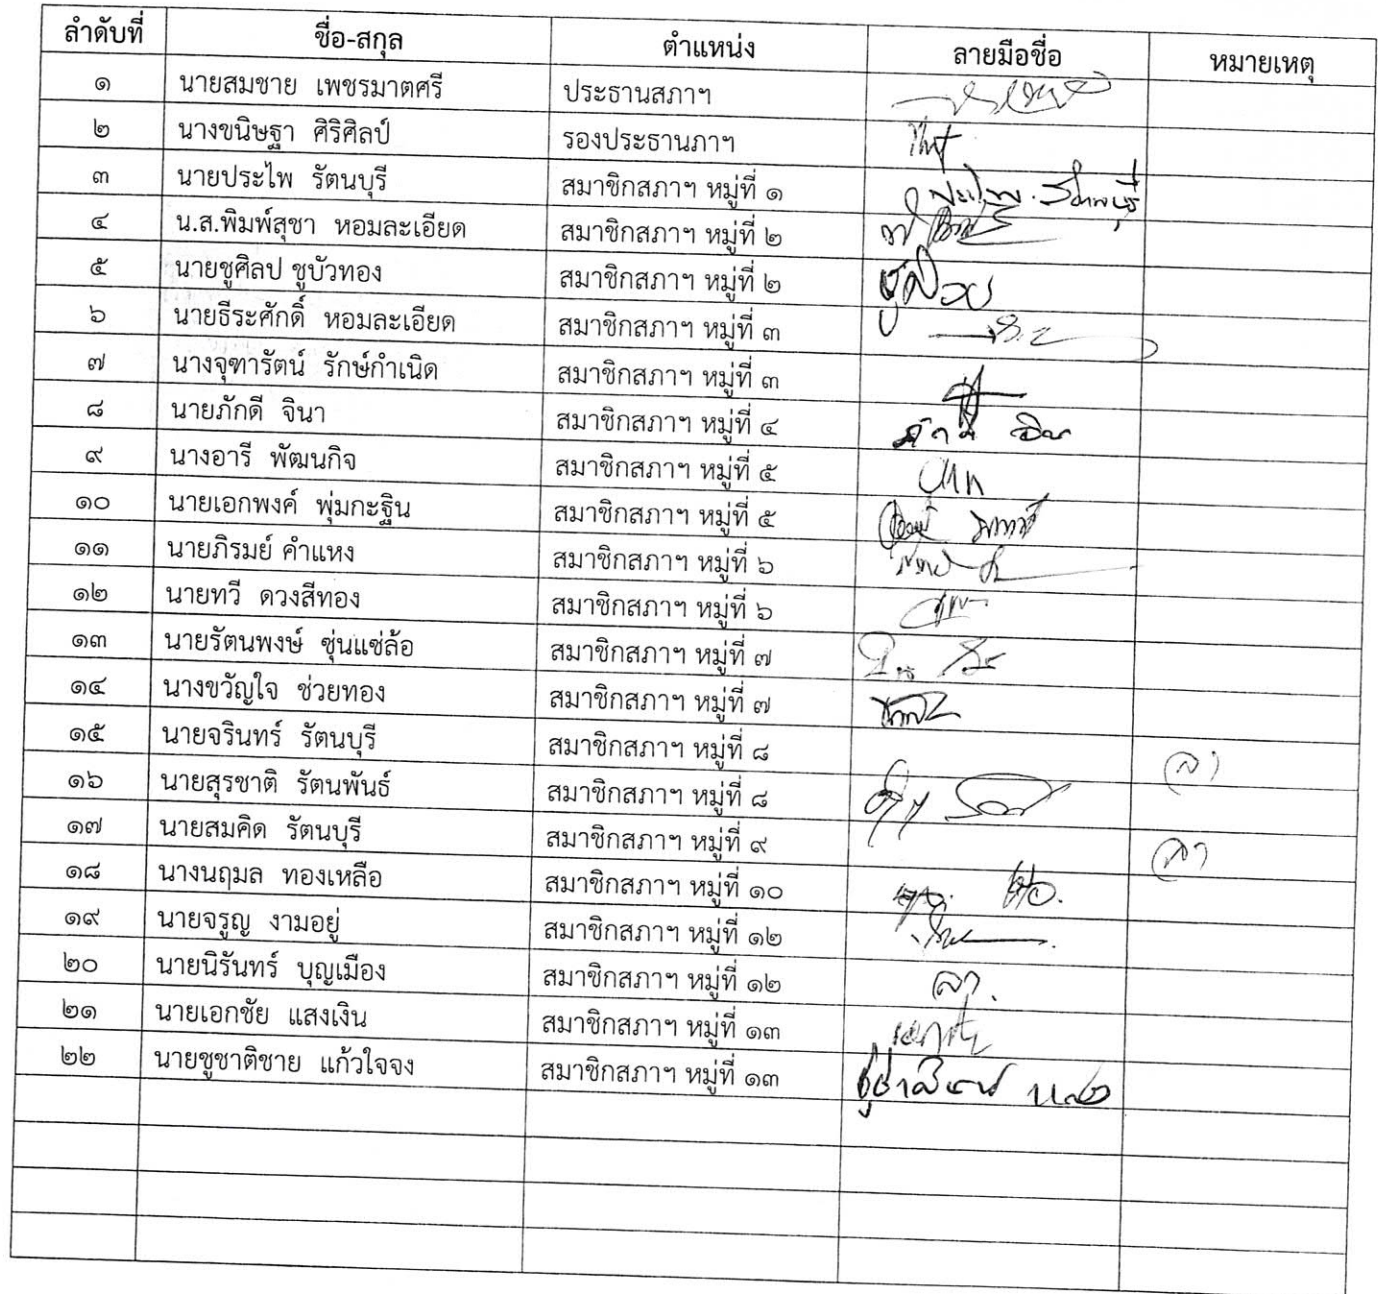 ลำดับที่ ชื่อ-สกุล ตำแหน่ง ลายมือชื่อ หมายเหตุ
๑ นายสมชาย เพชรมาตศรี ประธานสภาฯ
๒ นางขนิษฐา ศิริศิลป์ รองประธานภาฯ
๓ นายประไพ รัตนบุรี สมาชิกสภาฯ หมู่ที่ ๑
๔ น.ส.พิมพ์สุชา หอมละเอียด สมาชิกสภาฯ หมู่ที่ ๒
๕ นายชูศิลป ชูบัวทอง สมาชิกสภาฯ หมู่ที่ ๒
๖ นายธีระศักดิ์ หอมละเอียด สมาชิกสภาฯ หมู่ที่ ๓
๗ นางจุฑารัตน์ รักษ์กำเนิด สมาชิกสภาฯ หมู่ที่ ๓
๘ นายภักดี จินา สมาชิกสภาฯ หมู่ที่ ๔
๙ นางอารี พัฒนกิจ สมาชิกสภาฯ หมู่ที่ ๕
๑๐ นายเอกพงค์ พุ่มกะฐิน สมาชิกสภาฯ หมู่ที่ ๕
๑๑ นายภิรมย์ คำแหง สมาชิกสภาฯ หมู่ที่ ๖
๑๒ นายทวี ดวงสีทอง สมาชิกสภาฯ หมู่ที่ ๖
๑๓ นายรัตนพงษ์ ซุ่นแซ่ล้อ สมาชิกสภาฯ หมู่ที่ ๗
๑๔ นางขวัญใจ ช่วยทอง สมาชิกสภาฯ หมู่ที่ ๗
๑๕ นายจรินทร์ รัตนบุรี สมาชิกสภาฯ หมู่ที่ ๘ ลา
๑๖ นายสุรชาติ รัตนพันธ์ สมาชิกสภาฯ หมู่ที่ ๘
๑๗ นายสมคิด รัตนบุรี สมาชิกสภาฯ หมู่ที่ ๙ ลา
๑๘ นางนฤมล ทองเหลือ สมาชิกสภาฯ หมู่ที่ ๑๐
๑๙ นายจรูญ งามอยู่ สมาชิกสภาฯ หมู่ที่ ๑๒
๒๐ นายนิรันทร์ บุญเมือง สมาชิกสภาฯ หมู่ที่ ๑๒ ลา.
๒๑ นายเอกชัย แสงเงิน สมาชิกสภาฯ หมู่ที่ ๑๓
๒๒ นายชูชาติชาย แก้วใจจง สมาชิกสภาฯ หมู่ที่ ๑๓